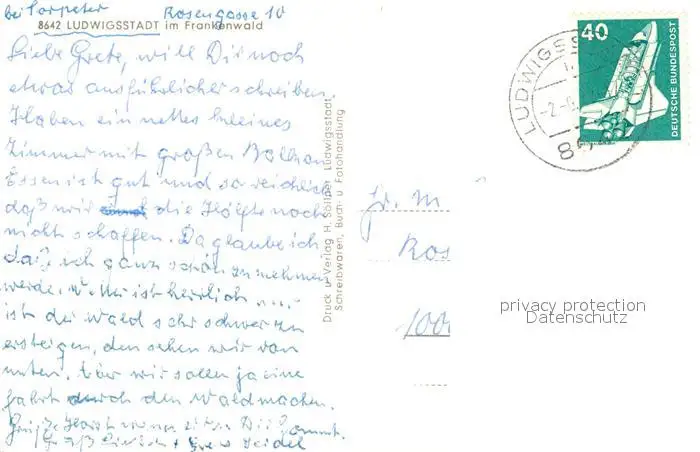 bei Rosengasse 10
8642 LUDWIGSSTADT im Frankenwald
Liebe Grete, will Dir noch
etwas ausführlicher schreiben.
Haben ein nettes kleines
Zimmer mit großen Balkon
Essen ist gut und so reichlich
daß wir die Hälfte noch
nicht schaffen. Da glaube ich
daß ich ganz schön zunehmen
werde. Wetter ist herrlich nur
ist der Wald sehr schwer zu
ersteigen, den sehen wir von
unten. Aber wir sollen ja eine
fahrt durch den Wald machen.
Druck u. Verlag H. Söllner, Ludwigsstadt
Schreibwaren, Buch- u. Fotohandlung
LUDWIGSS
-2.
86
40
DEUTSCHE BUNDESPOST
Fr. M
Ros
100
privacy protection
Datenschutz